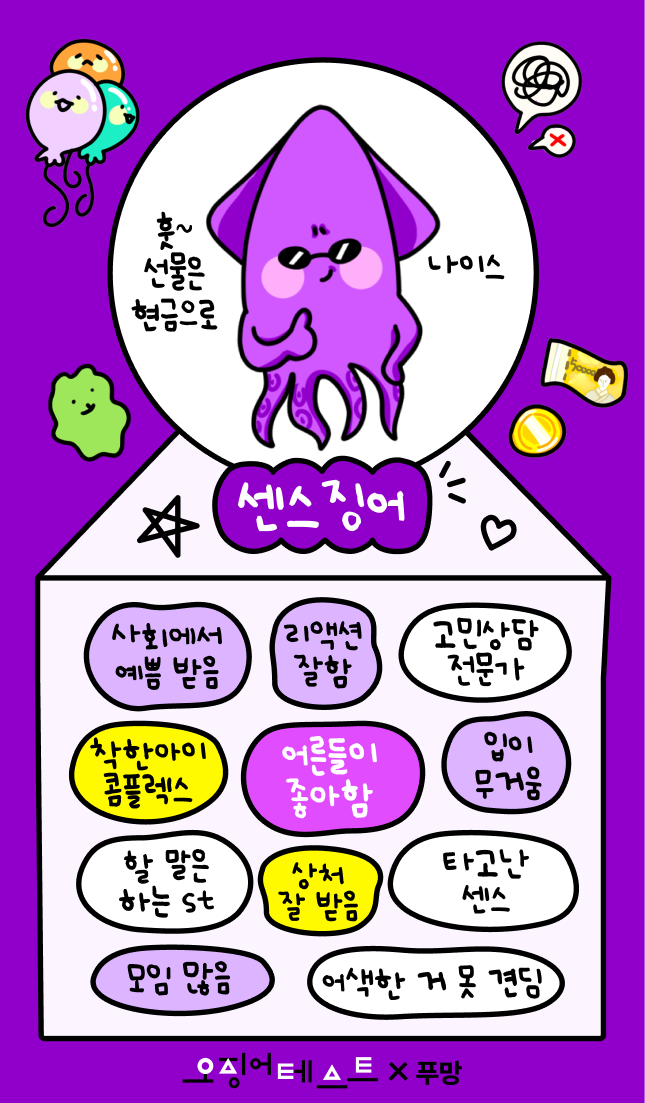 훗~
선물은
현금으로
나이스
50000
센스 징어
사회에서
예쁨 받음
리액션
잘함
고민상담
전문가
착한아이
콤플렉스
어른들이
좋아함
입이
무거움
할 말은
하는 st
상처
잘 받음
타고난
센스
모임 많음
어색한 거 못 견딤
오징어테스트 × 푸망